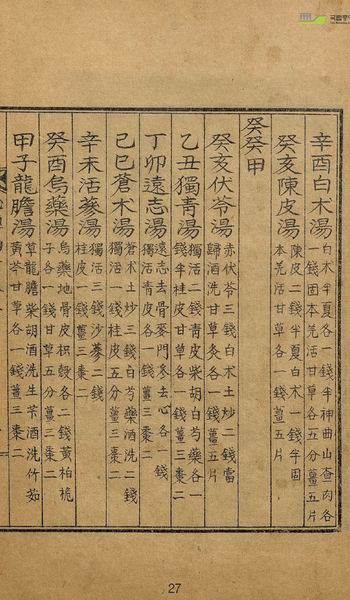 辛酉白朮湯
白朮半夏各一錢半神曲山查肉各
一錢固本羌活甘草各五分薑五片
癸亥陳皮湯
陳皮二錢半夏白朮一錢半固
本羌活甘草各一錢薑五片
癸癸甲
癸亥伏苓湯
赤伏苓三錢白朮土炒二錢當
歸酒洗甘草灸各一錢薑五片
乙丑獨青湯
獨活二錢青皮柴胡白芍藥各一
錢半桂皮甘草各一錢薑三棗二
丁卯遠志湯
遠志去骨麥門冬去心各一錢
獨活青皮各一錢薑三棗二
己巳蒼朮湯
蒼朮土炒三錢白芍藥酒洗二錢
獨活一錢桂皮五分薑三棗二
辛未活蔘湯
獨活三錢沙蔘二錢
桂皮一錢薑三棗二
癸酉烏藥湯
烏藥地骨皮枳殼各二錢黃柏梔
子各一錢甘草五分薑三棗二
甲子龍膽湯
草龍膽柴胡酒洗生芐酒洗竹茹
黃芩甘草各一錢薑三棗二
27